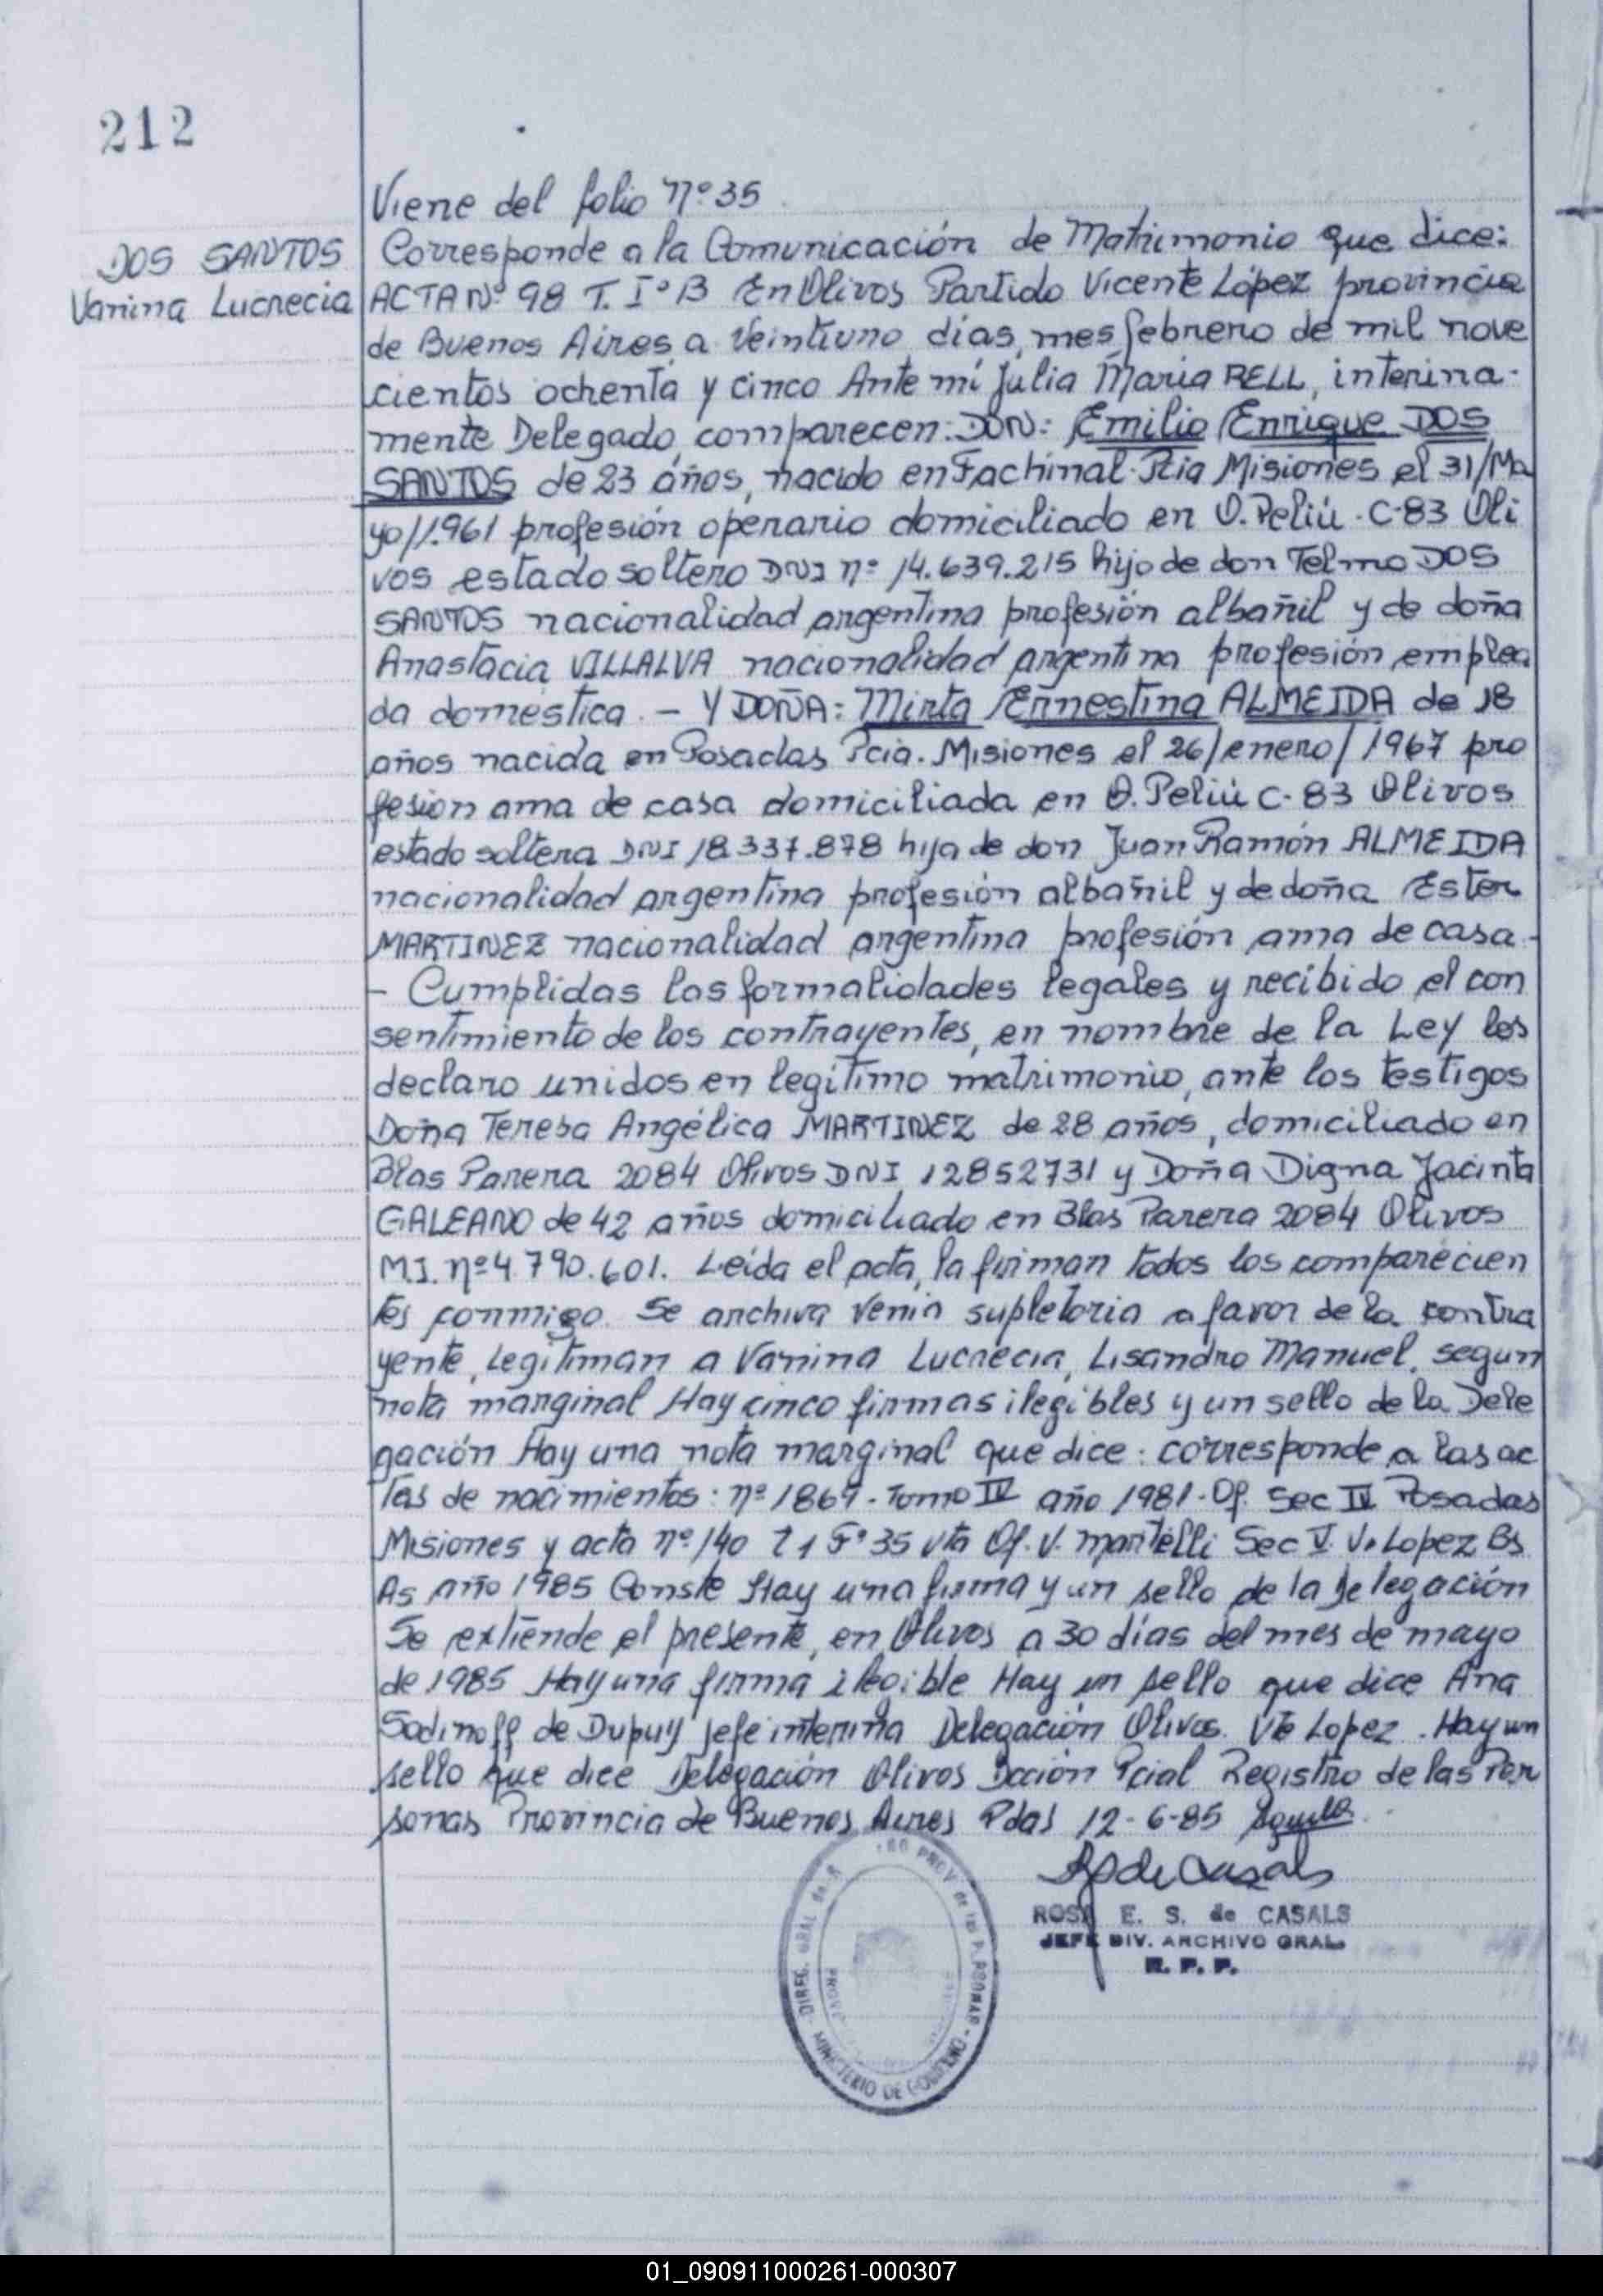 212
Viene del folio Nº 35
DOS SANTOS
Vanina Lucrecia
Corresponde a la Comunicación de Matrimonio que dice:
ACTA Nº 98 T. Iº B En Olivos Partido Vicente López provincia
de Buenos Aires, a Veintiuno días, mes febrero de mil nove
cientos ochenta y cinco Ante mí Julia Maria RELL, interina-
mente Delegado, comparecen: DON: Emilio Enrique DOS
SANTOS de 23 años, nacido en Fachinal-Pcia Misiones el 31/Ma
yo/1.961 profesión operario domiciliado en O. Peliú. C-83 Oli
vos estado soltero DNI nº 14.639.215 hijo de don Telmo DOS
SANTOS nacionalidad argentina profesión albañil y de doña
Anastacia VILLALVA nacionalidad argentina profesión emplea
da doméstica. - Y DOÑA: Mirta Ernestina ALMEIDA de 18
años nacida en Posadas Pcia. Misiones el 26/enero/1967 pro
fesion ama de casa domiciliada en O. Peliú C-83 Olivos
estado soltera DNI 18.337.878 hija de don Juan Ramón ALMEIDA
nacionalidad argentina profesión albañil y de doña Ester
MARTINEZ nacionalidad argentina profesión ama de casa.-
- Cumplidas las formalidades legales y recibido el con
sentimiento de los contrayentes, en nombre de la Ley los
declaro unidos en legítimo matrimonio, ante los testigos
Doña Teresa Angélica MARTINEZ de 28 años, domiciliado en
Blas Parera 2084 Olivos DNI 12852731 y Doña Digna Jacinta
GALEANO de 42 años domiciliado en Blas Parera 2084 Olivos
M.I. nº 4.790.601. Leída el acta, la firman todos los comparecien
tes conmigo. Se archiva venia supletoria a favor de la contra
yente, Legitiman a Vanina Lucrecia, Lisandro Manuel, segun
nota marginal Hay cinco firmas ilegibles y un sello de la Dele
gación Hay una nota marginal que dice: corresponde a las ac
tas de nacimientos: nº 1869-Tomo IV año 1981-Of. Sec IV Posadas
Misiones y acta nº 140 t 1 Fº 35 vta Of. V. Martelli Sec V. V. Lopez Bs
As año 1985 Conste Hay una firma y un sello de la Delegación
Se extiende el presente, en Olivos a 30 días del mes de mayo
de 1985 Hay una firma ilegible Hay un sello que dice Ana
Sodinoff de Dupuy jefe interina Delegación Olivos. Vte Lopez. Hay un
sello que dice Delegación Olivos Dcción Pcial Registro de las Per
sonas Provincia de Buenos Aires Pdas 12-6-85
ROSA E. S. de CASALS
JEFE DIV. ARCHIVO GRAL.
R. P. P.
DIREC. GRAL de PROV. de las PERSONAS - MINISTERIO DE GOBIERNO -
01_090911000261-000307